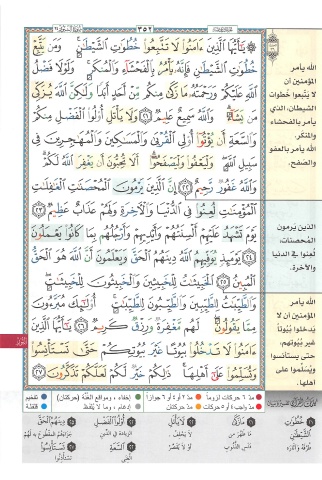 ٣٥٢
يَٰٓأَيُّهَا ٱلَّذِينَ ءَامَنُوا۟ لَا تَتَّبِعُوا۟ خُطُوَٰتِ ٱلشَّيْطَٰنِ ۚ وَمَن يَتَّبِعْ
خُطُوَٰتِ ٱلشَّيْطَٰنِ فَإِنَّهُۥ يَأْمُرُ بِٱلْفَحْشَآءِ وَٱلْمُنكَرِ ۚ وَلَوْلَا فَضْلُ
ٱللَّهِ عَلَيْكُمْ وَرَحْمَتُهُۥ مَا زَكَىٰ مِنكُم مِّنْ أَحَدٍ أَبَدًا وَلَٰكِنَّ ٱللَّهَ يُزَكِّى
مَن يَشَآءُ ۗ وَٱللَّهُ سَمِيعٌ عَلِيمٌ ٢١ وَلَا يَأْتَلِ أُو۟لُوا۟ ٱلْفَضْلِ مِنكُمْ
وَٱلسَّعَةِ أَن يُؤْتُوٓا۟ أُو۟لِى ٱلْقُرْبَىٰ وَٱلْمَسَٰكِينَ وَٱلْمُهَٰجِرِينَ فِى
سَبِيلِ ٱللَّهِ ۖ وَلْيَعْفُوا۟ وَلْيَصْفَحُوٓا۟ ۗ أَلَا تُحِبُّونَ أَن يَغْفِرَ ٱللَّهُ لَكُمْ ۗ
وَٱللَّهُ غَفُورٌ رَّحِيمٌ ٢٢ إِنَّ ٱلَّذِينَ يَرْمُونَ ٱلْمُحْصَنَٰتِ ٱلْغَٰفِلَٰتِ
ٱلْمُؤْمِنَٰتِ لُعِنُوا۟ فِى ٱلدُّنْيَا وَٱلْءَاخِرَةِ وَلَهُمْ عَذَابٌ عَظِيمٌ ٢٣
يَوْمَ تَشْهَدُ عَلَيْهِمْ أَلْسِنَتُهُمْ وَأَيْدِيهِمْ وَأَرْجُلُهُم بِمَا كَانُوا۟ يَعْمَلُونَ
٢٤ يَوْمَئِذٍ يُوَفِّيهِمُ ٱللَّهُ دِينَهُمُ ٱلْحَقَّ وَيَعْلَمُونَ أَنَّ ٱللَّهَ هُوَ ٱلْحَقُّ
ٱلْمُبِينُ ٢٥ ٱلْخَبِيثَٰتُ لِلْخَبِيثِينَ وَٱلْخَبِيثُونَ لِلْخَبِيثَٰتِ ۖ
وَٱلطَّيِّبَٰتُ لِلطَّيِّبِينَ وَٱلطَّيِّبُونَ لِلطَّيِّبَٰتِ ۚ أُو۟لَٰٓئِكَ مُبَرَّءُونَ
مِمَّا يَقُولُونَ ۖ لَهُم مَّغْفِرَةٌ وَرِزْقٌ كَرِيمٌ ٢٦ يَٰٓأَيُّهَا ٱلَّذِينَ
ءَامَنُوا۟ لَا تَدْخُلُوا۟ بُيُوتًا غَيْرَ بُيُوتِكُمْ حَتَّىٰ تَسْتَأْنِسُوا۟
وَتُسَلِّمُوا۟ عَلَىٰٓ أَهْلِهَا ۚ ذَٰلِكُمْ خَيْرٌ لَّكُمْ لَعَلَّكُمْ تَذَكَّرُونَ ٢٧
الله يأمر
المؤمنين أن
لا يتّبعوا خطوات
الشيطان، الذي
يأمر بالفحشاء
والمنكر.
والله يأمر بالعفو
والصّفح.
الذين يرمون
المحصنات،
لُعنوا في الدنيا
والآخرة.
الله يأمر
المؤمنين أن لا
يدخلوا بُيوتًا
غير بُيوتهم
حتى يستأنسوا
ويُسلّموا على
أهلها.
مدّ ٦ حركات لزوماً
مدّ ٢ أو ٤ أو ٦ جوازاً
إخفاء، ومواقع الغُنّة (حركتان)
تفخيم
مدّ حركتان
إدغام، وما لا يُلفظ
قلقلة